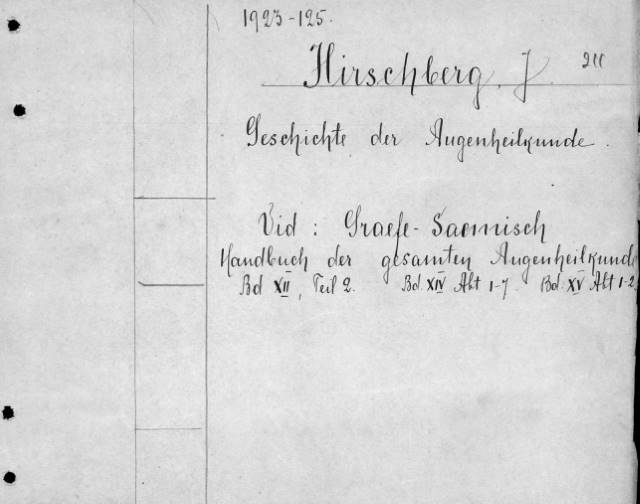 1923-125.
Hirschberg, J. 211
Geschichte der Augenheilkunde.
Vid: Graefe-Saemisch
Handbuch der gesamten Augenheilkunde
Bd XII, Teil 2. Bd. XIV Abt 1-7 Bd. XV Abt 1-2